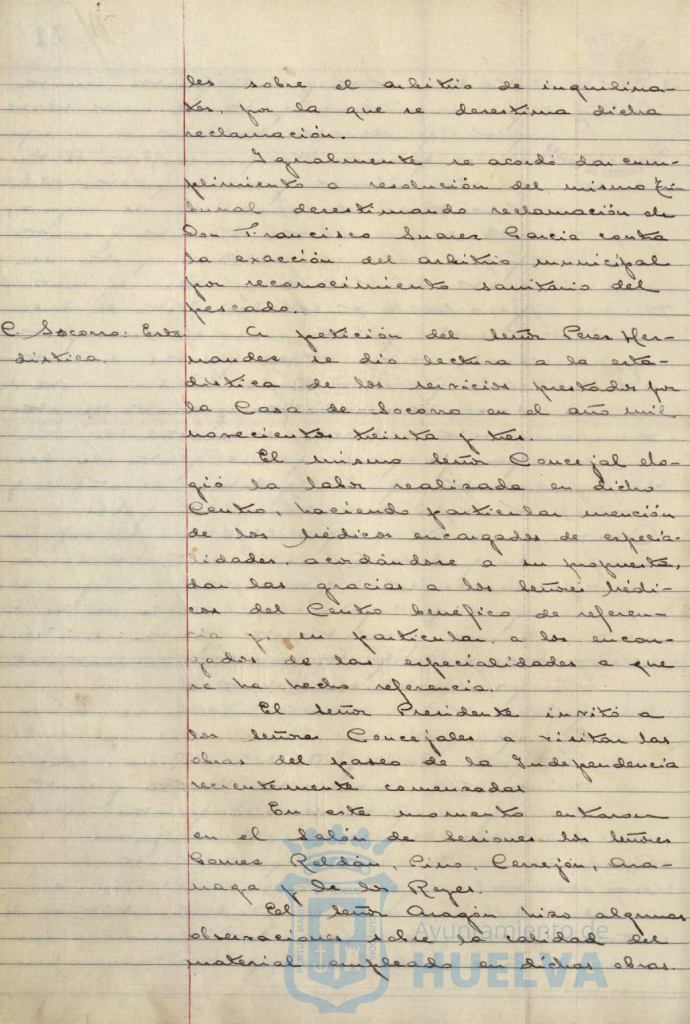 les sobre el arbitrio de inquilina-
tos, por la que se desestima dicha
reclamación.
Igualmente se acordó dar cum-
plimiento a resolución del mismo Tri-
bunal desestimando reclamación de
Don Francisco Suarez Garcia contra
la exacción del arbitrio municipal
por reconocimiento sanitario del
pescado.
C. Socorro: Esta
distica.
A petición del Señor Perez Her-
nandez se dio lectura a la esta-
distica de los servicios prestados por
la Casa de Socorro en el año mil
novecientos treinta y tres.
El mismo Señor Concejal elo-
gió la labor realizada en dicho
Centro, haciendo particular mención
de los Médicos encargados de especia-
lidades, acordándose a su propuesta,
dar las gracias a los Señores Médi-
cos del Centro benéfico de referen-
cia y, en particular, a los encar-
gados de las especialidades a que
se ha hecho referencia.
El Señor Presidente invitó a
los Señores Concejales a visitar las
obras del paseo de la Independencia
recientemente comenzadas
En este momento entraron
en el Salón de Sesiones los Señores
Gomez Roldán, Pino, Cerrejón, Ara-
naga y de los Reyes.
El Señor Aragón hizo algunas
observaciones sobre la calidad del
material empleado en dichas obras.
Ayuntamiento de
HUELVA